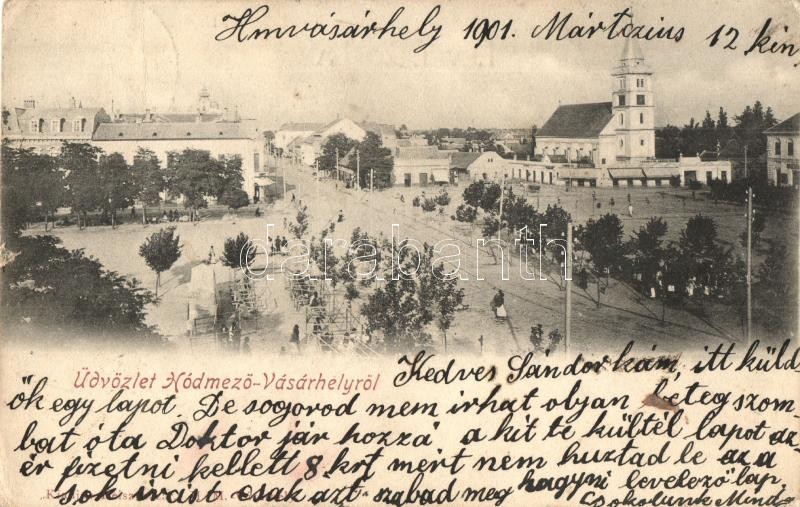 Hmvásárhely 1901. Mártczius 12 kén
darabanth
Üdvözlet Hódmező-Vásárhelyről
Kedves Sándorkám, itt küld
ök egy lapot. De sogorod mem irhat olyan beteg szom
bat óta Doktor jár hozzá a kit te kültél lapot az
ér fizetni kellett 8 krt mért nem huztad le az a
sok irást csak azt szabad meg hagyni levelező lap.
csokolunk Mind